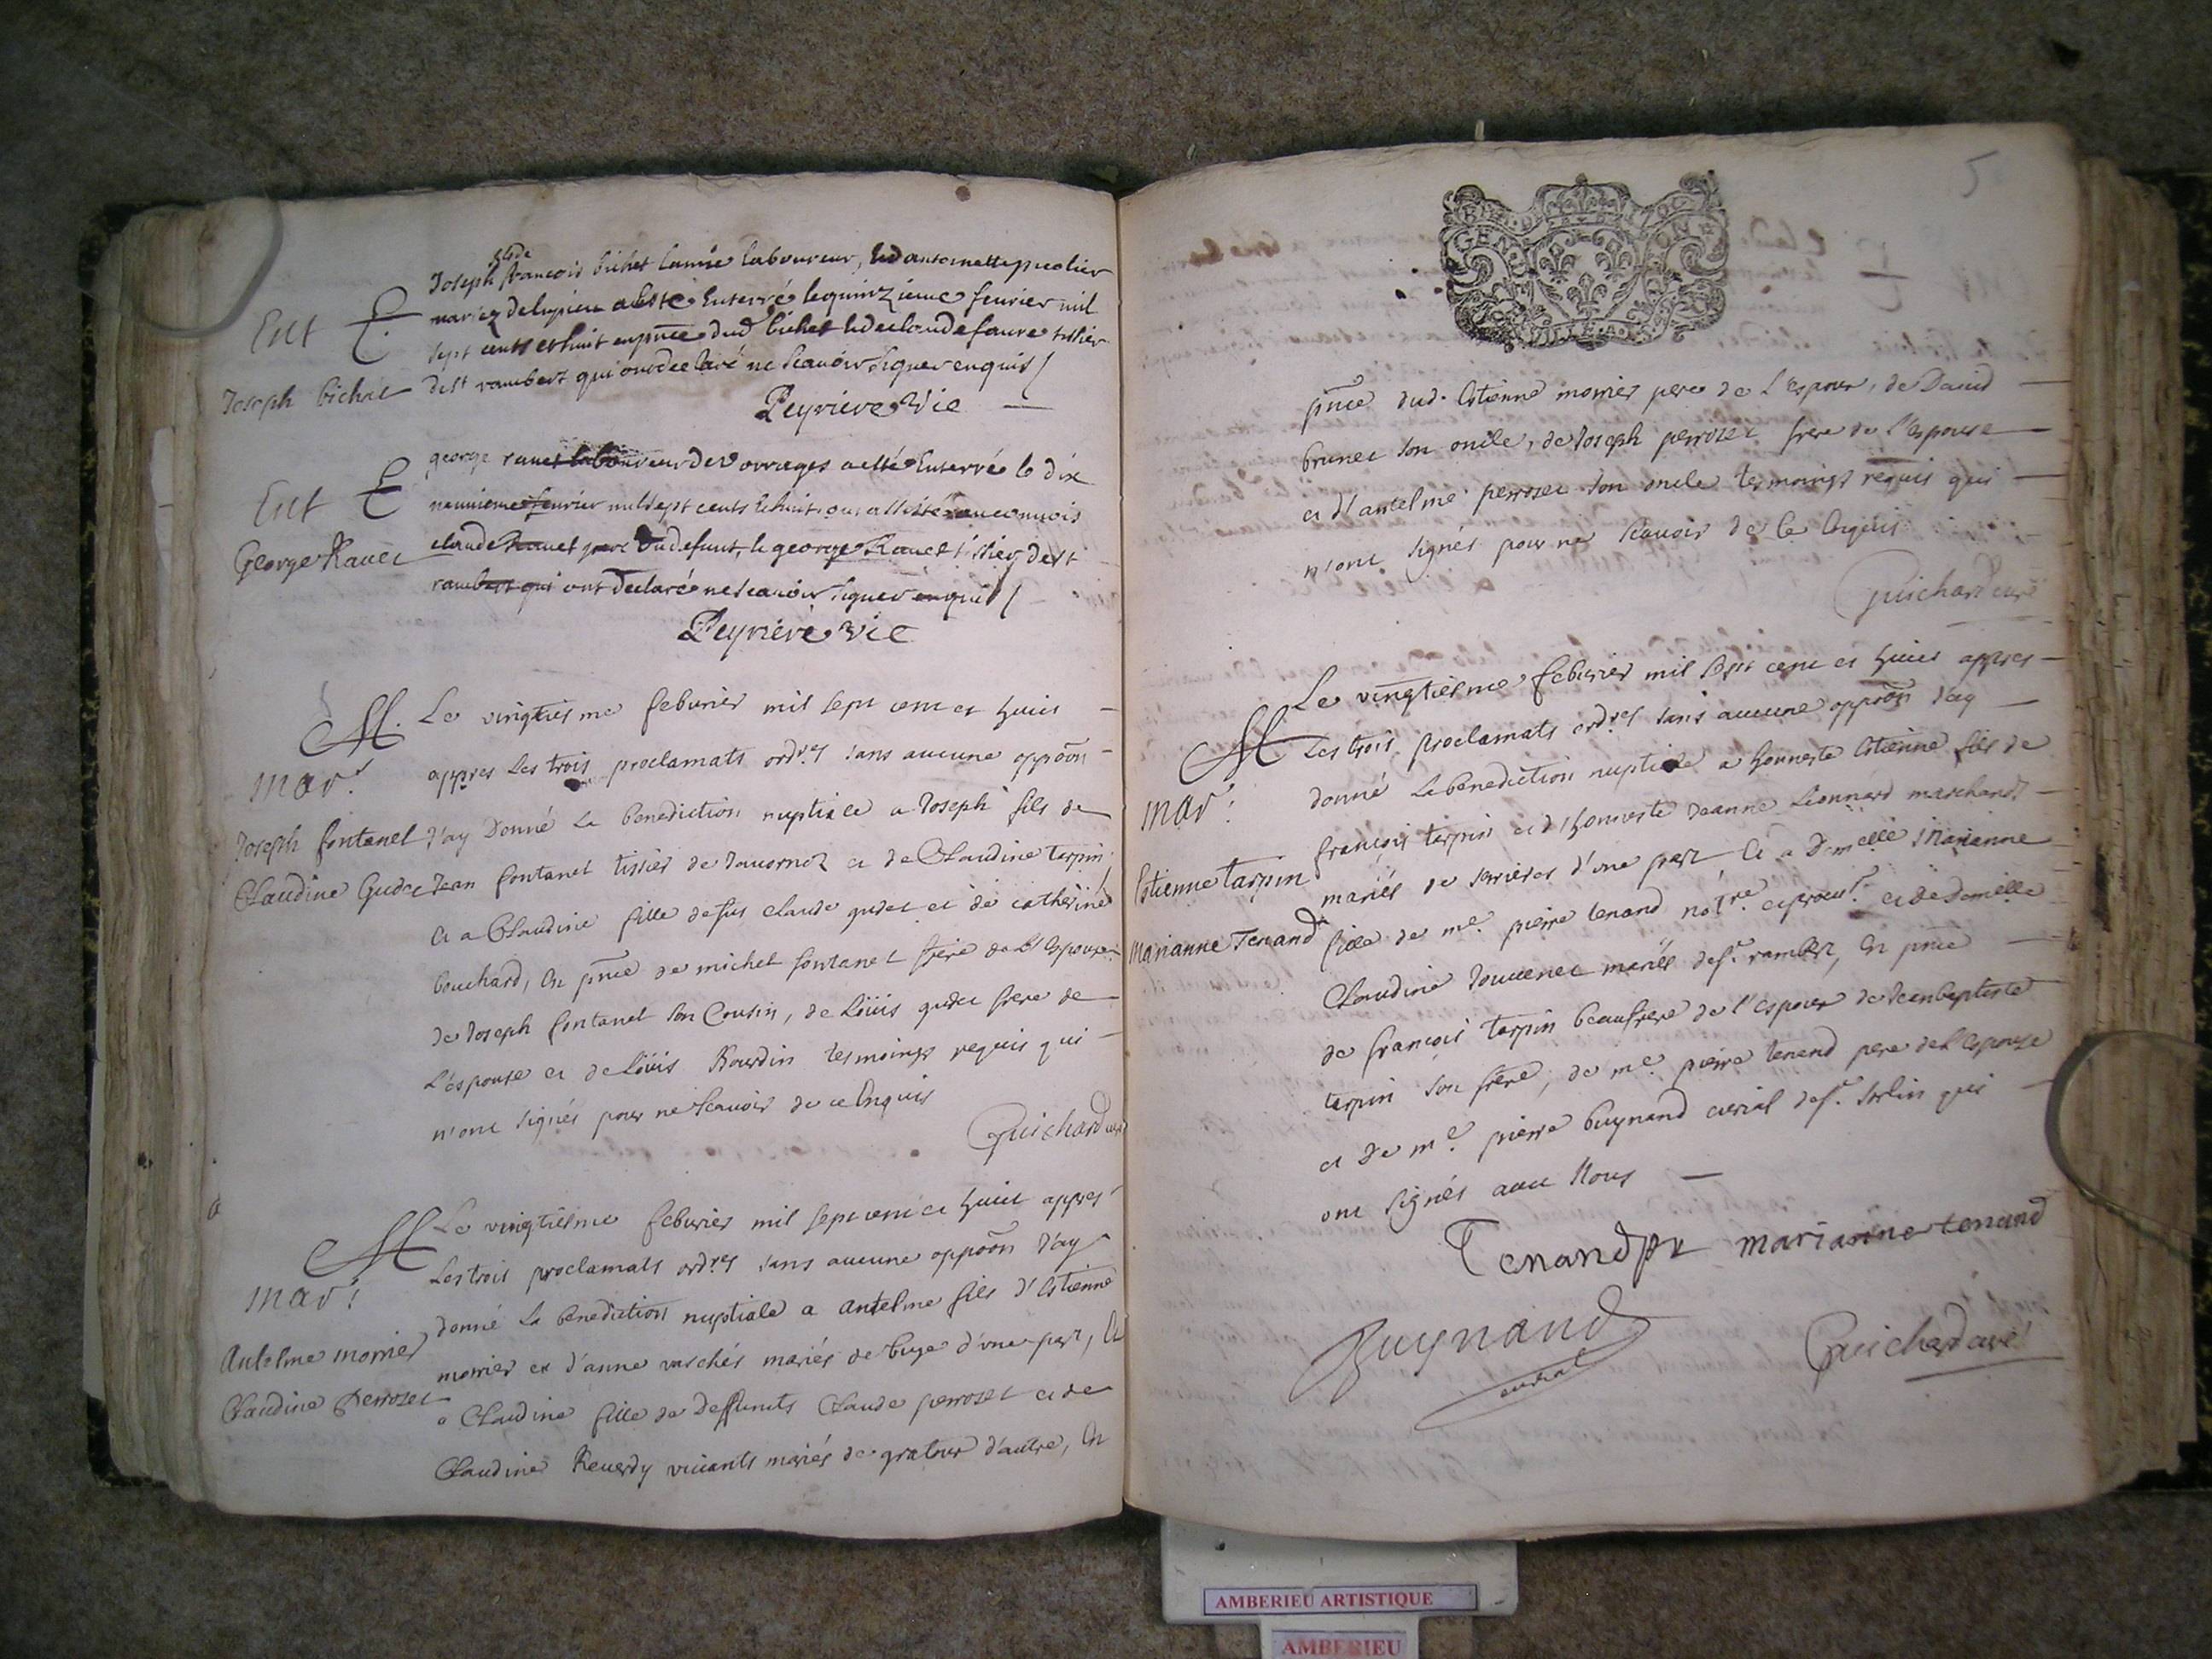 fils de
Joseph francois bichet lainé laboureur, et d'antoinette
mariez a esté Enterré le quinzieme feurier mil
Ent
sept cents et huit en pnce dud bichet et de claude faure tissier
Joseph bichet
de st rambert qui ont declaré ne scauoir signer enquis
Peyriere Vic
george rauet laboureur de Vorages a esté Enterré le dix
Ent
neuuieme feurier mil sept cents et huit
George Rauet
claude Rauet du defunt, et george Rauet tissier de st
rambert qui ont declaré ne scauoir signer enquis
Peyriere Vic
M.
Le vingtiesme feburier mil sept cent et huict
mar.
appres les trois proclamats ordres sans aucune oppoõn
Joseph fontanet
J'ay donné la benediction nuptiale a Joseph fils de
Claudine Gudet
Jean fontanet tissier de et de Claudine tarpin
et a Claudine fille de fus claude gudet et de catherine
bouchard, en pnce de michel fontanet frere de l'espoux
de Joseph fontanet son Cousin, de Loüis gudet frere de
l'espouse et de Loüis Bourdin tesmoings requis qui
n'ont signés pour ne scauoir de ce enquis
Guichard curé
M
Le vingtiesme feburier mil sept cent et huict appres
mar.
Les trois proclamats ordres sans aucune oppoõn J'ay
donné la benediction nuptiale a antelme fils d'estienne
Antelme morrier
morrier et d'anne mariés de buge d'une part, et
Claudine Perrozet
a Claudine fille de deffunts Claude perrozet et de
Claudine Reuerdy viuants mariés de gratoux d'autre, en
5
GEN
pnce dud. estienne morrier pere de l'espoux, de Dauid
brunet son oncle, de Joseph perrozet frere de l'espouse
et d'antelme perrozet son oncle tesmoings requis qui
n'ont signés pour ne scauoir de ce enquis
Guichard curé
M
Le vingtiesme feburier mil sept cent et huict appres
Les trois proclamats ordres sans aucune oppoõn J'ay
mar.
donné la benediction nuptiale a honneste estienne fils de
françois tarpin et d'honneste Jeanne Leonnard marchands
Estienne tarpin
mariés de serrieres d'une part et a Demelle Marianne
Marianne Tenand
fille de me. pierre tenand notre. et procur. et de Demelle
Claudine Jouuenet mariés de st. rambert, en pnce
de françois tarpin beaufrere de l'espoux de Jeanbaptiste
tarpin son frere, de me. pierre tenand pere de l'espouse
et de me. pierre buynand curial de st. sorlin qui
ont signés auec Nous
Tenand pr marianne tenand
Buynand
curial
Guichard curé
AMBERIEU ARTISTIQUE
AMBERIEU